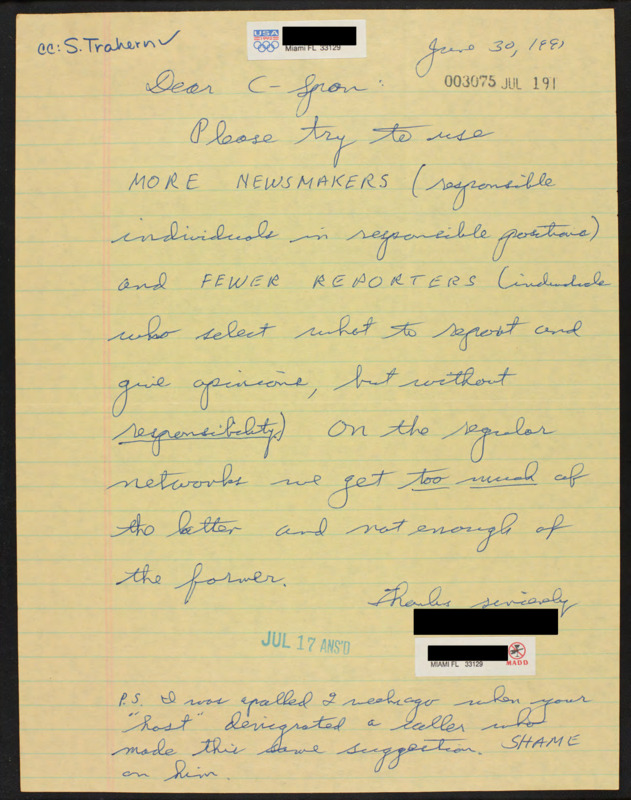 cc: S. Trahern ✓
USA
Miami FL 33129
June 30, 1991
003075 JUL 191
Dear C-Span:
Please try to use
MORE NEWSMAKERS (responsible
individuals in responsible positions)
and FEWER REPORTERS (individuals
who select what to report and
give opinions, but without
responsibility.) On the regular
networks we get too much of
the latter and not enough of
the former.
Thanks sincerely
JUL 17 ANS'D
MIAMI FL 33129
MADD
P.S. I was apalled 2 weeks ago when your
"host" denigrated a caller who
made this same suggestion. SHAME
on him.